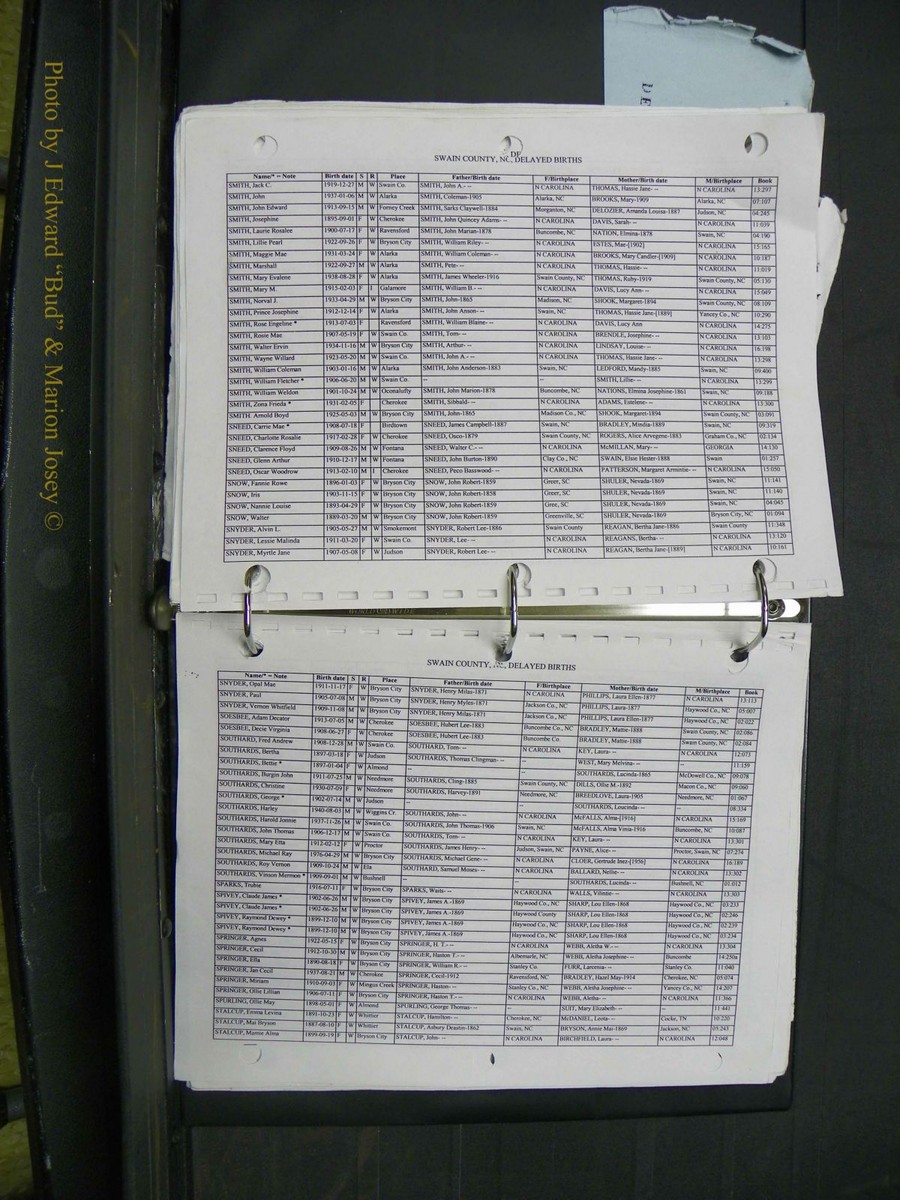 DE
Photo by J Edward "Bud" & Marion Josey ©
SWAIN COUNTY, NC, DELAYED BIRTHS
Name/* = Note Birth date S R Place Father/Birth date F/Birthplace Mother/Birth date M/Birthplace Book
SMITH, Jack C. 1919-12-27 M W Swain Co. SMITH, John A.- -- N CAROLINA THOMAS, Hassie Jane- -- N CAROLINA 13:297
SMITH, John 1937-01-06 M W Alarka SMITH, Coleman-1905 Alarka, NC BROOKS, Mary-1909 Alarka, NC 07:107
SMITH, John Edward 1913-09-15 M W Forney Creek SMITH, Sarks Claywell-1884 Morganton, NC DELOZIER, Amanda Louisa-1887 Judson, NC 04:245
SMITH, Josephine 1895-09-01 F W Cherokee SMITH, John Quincey Adams- -- N CAROLINA DAVIS, Sarah- -- N CAROLINA 11:039
SMITH, Laurie Rosalee 1900-07-17 F W Ravensford SMITH, John Marian-1878 Buncombe, NC NATION, Elmina-1878 Swain, NC 04:190
SMITH, Lillie Pearl 1922-09-26 F W Bryson City SMITH, William Riley- -- N CAROLINA ESTES, Mae-[1902] N CAROLINA 15:165
SMITH, Maggie Mae 1931-03-24 F W Alarka SMITH, William Coleman- -- N CAROLINA BROOKS, Mary Candler-[1909] N CAROLINA 10:187
SMITH, Marshall 1922-09-27 M W Alarka SMITH, Pete- -- N CAROLINA THOMAS, Hassie- -- N CAROLINA 11:019
SMITH, Mary Evalene 1938-08-28 F W Alarka SMITH, James Wheeler-1916 Swain County, NC THOMAS, Ruby-1919 Swain County, NC 05:130
SMITH, Mary M. 1915-02-03 F I Galamore SMITH, William B.- -- N CAROLINA DAVIS, Lucy Ann- -- N CAROLINA 15:049
SMITH, Norval J. 1933-04-29 M W Bryson City SMITH, John-1865 Madison, NC SHOOK, Margaret-1894 Swain County, NC 08:109
SMITH, Prince Josephine 1912-12-14 F W Alarka SMITH, John Anson- -- Swain, NC THOMAS, Hassie Jane-[1889] Yancey Co., NC 10:290
SMITH, Rose Engeline * 1913-07-03 F Ravensford SMITH, William Blaine- -- N CAROLINA DAVIS, Lucy Ann N CAROLINA 14:275
SMITH, Rosie Mae 1907-05-19 F W Swain Co. SMITH, Tom- -- N CAROLINA BRENDLE, Josephine- -- N CAROLINA 13:103
SMITH, Walter Ervin 1934-11-16 M W Bryson City SMITH, Arthur- -- N CAROLINA LINDSAY, Louise- -- N CAROLINA 16:198
SMITH, Wayne Willard 1923-05-20 M W Swain Co. SMITH, John A.- -- N CAROLINA THOMAS, Hassie Jane- -- N CAROLINA 13:298
SMITH, William Coleman 1903-01-16 M W Alarka SMITH, John Anderson-1883 Swain, NC LEDFORD, Mandy-1885 Swain, NC 09:400
SMITH, William Fletcher * 1906-06-20 M W Swain Co. -- -- SMITH, Lillie- -- N CAROLINA 13:299
SMITH, William Weldon 1901-10-24 M W Oconalufty SMITH, John Marion-1878 Buncombe, NC NATIONS, Elmina Josephine-1861 Swain, NC 09:188
SMITH, Zona Frieda * 1931-02-05 F Cherokee SMITH, Sibbald- -- N CAROLINA ADAMS, Estelene- -- N CAROLINA 13:300
SMITH. Arnold Boyd 1925-05-03 M W Bryson City SMITH, John-1865 Madison Co., NC SHOOK, Margaret-1894 Swain County, NC 03:091
SNEED, Carrie Mae * 1908-07-18 F Birdtown SNEED, James Campbell-1887 Swain, NC BRADLEY, Mindia-1889 Swain, NC 09:319
SNEED, Charlotte Rosalie 1917-02-28 F W Cherokee SNEED, Osco-1879 Swain County, NC ROGERS, Alice Arvegene-1883 Graham Co., NC 02:134
SNEED, Clarence Floyd 1909-08-26 M W Fontana SNEED, Walter C.- -- N CAROLINA McMILLAN, Mary- -- GEORGIA 14:130
SNEED, Glenn Arthur 1910-12-17 M W Fontana SNEED, John Burton-1890 Clay Co., NC SWAIN, Elsie Hester-1888 Swain 01:257
SNEED, Oscar Woodrow 1913-02-10 M I Cherokee SNEED, Peco Basswood- -- N CAROLINA PATTERSON, Margaret Armintie- -- N CAROLINA 15:050
SNOW, Fannie Rowe 1896-01-03 F W Bryson City SNOW, John Robert-1859 Greer, SC SHULER, Nevada-1869 Swain, NC 11:141
SNOW, Iris 1903-11-15 F W Bryson City SNOW, John Robert-1858 Greer, SC SHULER, Nevada-1869 Swain, NC 11:140
SNOW, Nannie Louise 1893-04-29 F W Bryson City SNOW, John Robert-1859 Gree, SC SHULER, Nevada-1869 Swain, NC 04:045
SNOW, Walter 1889-03-20 M W Bryson City SNOW, John Robert-1859 Greenville, SC SHULER, Nevada-1869 Bryson City, NC 01:094
SNYDER, Alvin L. 1905-05-27 M W Smokemont SNYDER, Robert Lee-1886 Swain County REAGAN, Bertha Jane-1886 Swain County 11:348
SNYDER, Lessie Malinda 1911-03-20 F W Swain Co. SNYDER, Lee- -- N CAROLINA REAGANS, Bertha- -- N CAROLINA 13:120
SNYDER, Myrtle Jane 1907-05-08 F W Judson SNYDER, Robert Lee- -- N CAROLINA REAGAN, Bertha Jane-[1889] N CAROLINA 10:161
SWAIN COUNTY, NC, DELAYED BIRTHS
Name/* = Note Birth date S R Place Father/Birth date F/Birthplace Mother/Birth date M/Birthplace Book
SNYDER, Opal Mae 1911-11-17 F W Bryson City SNYDER, Henry Milas-1871 N CAROLINA PHILLIPS, Laura Ellen-1877 N CAROLINA 13:113
SNYDER, Paul 1905-07-08 M W Bryson City SNYDER, Henry Myles-1871 Jackson Co., NC PHILLIPS, Laura-1877 Haywood Co., NC 05:007
SNYDER, Vernon Whitfield 1909-11-08 M W Bryson City SNYDER, Henry Milas-1871 Jackson Co., NC PHILLIPS, Laura Ellen-1877 Haywood Co., NC 02:022
SOESBEE, Adam Decator 1913-07-05 M W Cherokee SOESBEE, Hubert Lee-1883 Buncombe Co., NC BRADLEY, Mattie-1888 Swain County, NC 02:086
SOESBEE, Decie Virginia 1908-06-27 F W Cherokee SOESBEE, Hubert Lee-1883 Buncombe Co. BRADLEY, Mattie-1888 Swain County, NC 02:084
SOUTHARD, Fred Andrew 1908-12-28 M W Swain Co. SOUTHARD, Tom- -- N CAROLINA KEY, Laura- -- N CAROLINA 12:073
SOUTHARDS, Bertha 1897-03-18 F W Judson SOUTHARDS, Thomas Clingman- -- -- WEST, Mary Melvina- -- -- 11:159
SOUTHARDS, Bettie * 1897-01-04 F W Almond -- -- SOUTHARDS, Lucinda-1865 McDowell Co., NC 09:078
SOUTHARDS, Burgin John 1911-07-25 M W Needmore SOUTHARDS, Cling-1885 Swain County, NC DILLS, Ollie M.-1892 Macon Co., NC 09:060
SOUTHARDS, Christine 1930-07-09 F W Needmore SOUTHARDS, Harvey-1891 Needmore, NC BREEDLOVE, Laura-1905 Needmore, NC 01:067
SOUTHARDS, George * 1902-07-14 M W Judson -- -- SOUTHARDS, Loucinda- -- -- 08:334
SOUTHARDS, Harley 1940-08-03 M W Wiggins Cr. SOUTHARDS, John- -- N CAROLINA McFALLS, Alma-[1916] N CAROLINA 15:169
SOUTHARDS, Harold Jonnie 1937-11-26 M W Swain Co. SOUTHARDS, John Thomas-1906 Swain, NC McFALLS, Alma Vinta-1916 Buncombe, NC 10:087
SOUTHARDS, John Thomas 1906-12-17 M W Swain Co. SOUTHARDS, Tom- -- N CAROLINA KEY, Laura- -- N CAROLINA 13:301
SOUTHARDS, Mary Etta 1912-02-12 F W Proctor SOUTHARDS, James Henry- -- Judson, Swain, NC PAYNE, Alice- -- Proctor, Swain, NC 07:274
SOUTHARDS, Michael Ray 1976-04-29 M W Bryson City SOUTHARDS, Michael Gene- -- N CAROLINA CLOER, Gertrude Inez-[1956] N CAROLINA 16:189
SOUTHARDS, Roy Vernon 1909-10-24 M W Ela SOUTHARD, Samuel Moses- -- N CAROLINA BALLARD, Nellie- -- N CAROLINA 13:302
SOUTHARDS, Vinson Merman * 1909-09-01 M W Bushnell -- -- SOUTHARDS, Lucinda- -- Bushnell, NC 01:012
SPARKS, Trubie 1916-07-11 F W Bryson City SPARKS, Waits- -- N CAROLINA WALLS, Vilintie- -- N CAROLINA 13:303
SPIVEY, Claude James * 1902-06-26 M W Bryson City SPIVEY, James A.-1869 Haywood Co., NC SHARP, Lou Ellen-1868 Haywood Co., NC 03:233
SPIVEY, Claude James * 1902-06-26 M W Bryson City SPIVEY, James A.-1869 Haywood County SHARP, Lou Ellen-1868 Haywood Co., NC 02:246
SPIVEY, Raymond Dewey * 1899-12-10 M W Bryson City SPIVEY, James A.-1869 Haywood Co., NC SHARP, Lou Ellen-1868 Haywood Co., NC 02:239
SPIVEY, Raymond Dewey * 1899-12-10 M W Bryson City SPIVEY, James A.-1869 Haywood Co., NC SHARP, Lou Ellen-1868 Haywood Co., NC 03:234
SPRINGER, Agnes 1922-05-15 F W Bryson City SPRINGER, H. T.- -- N CAROLINA WEBB, Aletha W.- -- N CAROLINA 13:304
SPRINGER, Cecil 1912-10-30 M W Bryson City SPRINGER, Haston T.- -- Albemarle, NC WEBB, Aletha Josephine- -- Buncombe 14:250a
SPRINGER, Ella 1890-08-18 F W Bryson City SPRINGER, William R.- -- Stanley Co. FURR, Larcenia- -- Stanley Co. 11:040
SPRINGER, Jan Cecil 1937-08-21 M W Cherokee SPRINGER, Cecil-1912 Ravensford, NC BRADLEY, Hazel May-1914 Cherokee, NC 05:074
SPRINGER, Miriam 1910-09-03 F W Mingus Creek SPRINGER, Haston- -- Stanley Co., NC WEBB, Aletha Josephine- -- Yancey Co., NC 14:207
SPRINGER, Ollie Lillian 1906-07-11 F W Bryson City SPRINGER, Haston T.- -- N CAROLINA WEBB, Aletha- -- N CAROLINA 11:366
SPURLING, Ollie May 1898-05-01 F W Almond SPURLING, George Thomas- -- -- SUIT, Mary Elizabeth- -- -- 11:441
STALCUP, Emma Levina 1891-10-23 F W Whittier STALCUP, Hamilton- -- Cherokee, NC McDANIEL, Loita- -- Cocke, TN 10:220
STALCUP, Mai Bryson 1887-08-10 F W Whittier STALCUP, Asbury Deastin-1862 Swain, NC BRYSON, Annie Mai-1869 Jackson, NC 05:243
STALCUP, Mamie Alma 1899-09-19 F W Bryson City STALCUP, John- -- N CAROLINA BIRCHFIELD, Laura- -- N CAROLINA 12:048